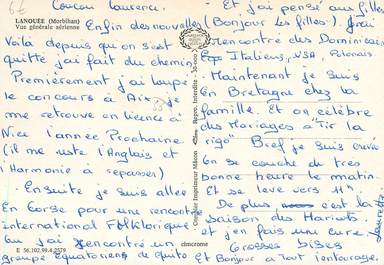 Coucou Laurence.
LANOUÉE (Morbihan)
Vue générale aérienne
Enfin des nouvelles
Voilà depuis qu'on s'est
quitté j'ai fait du chemin
Premièrement j'ai loupé
le concours à Aix. Je
me retrouve en licence à
Nice l'année Prochaine.
(il me reste l'Anglais et
l'Harmonie à repasser)
- Ensuite je suis allée
En Corse pour une rencontre
international Folklorique
où j'ai rencontré un
groupe Equatoriens de Quito
E 56.102.99.4.2579
cimcrome
Combier Imprimeur Mâcon
Repro. Interdite
Et j'ai pensé aux filles
(Bonjour les filles!). J'ai
rencontré des Dominicains
Italiens, USA, Polonais.
Maintenant je suis
en Bretagne chez la
famille. Et on célèbre
des Mariages à "Tir la
rigo" Bref je suis crevée
On se couche de très
bonne heure le matin
Et se lève vers 11h
De plus, c'est la
saison des Haricots
et j'en fais une cure.
Grosses bises
Et Bonjour à Tout l'entourage.